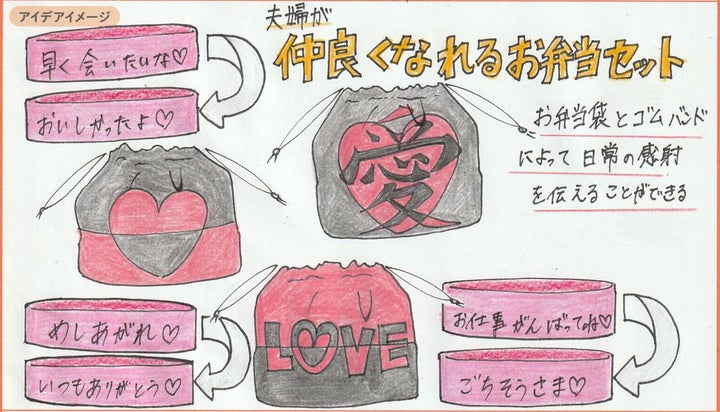 アイデアイメージ
夫婦が
仲良くなれるお弁当セット
早く会いたいな♡
おいしかったよ♡
愛
お弁当袋とゴムバンド
によって日常の感射
を伝えることができる
LOVE
めしあがれ♡
いつもありがとう♡
お仕事がんばってね♡
ごちそうさま♡